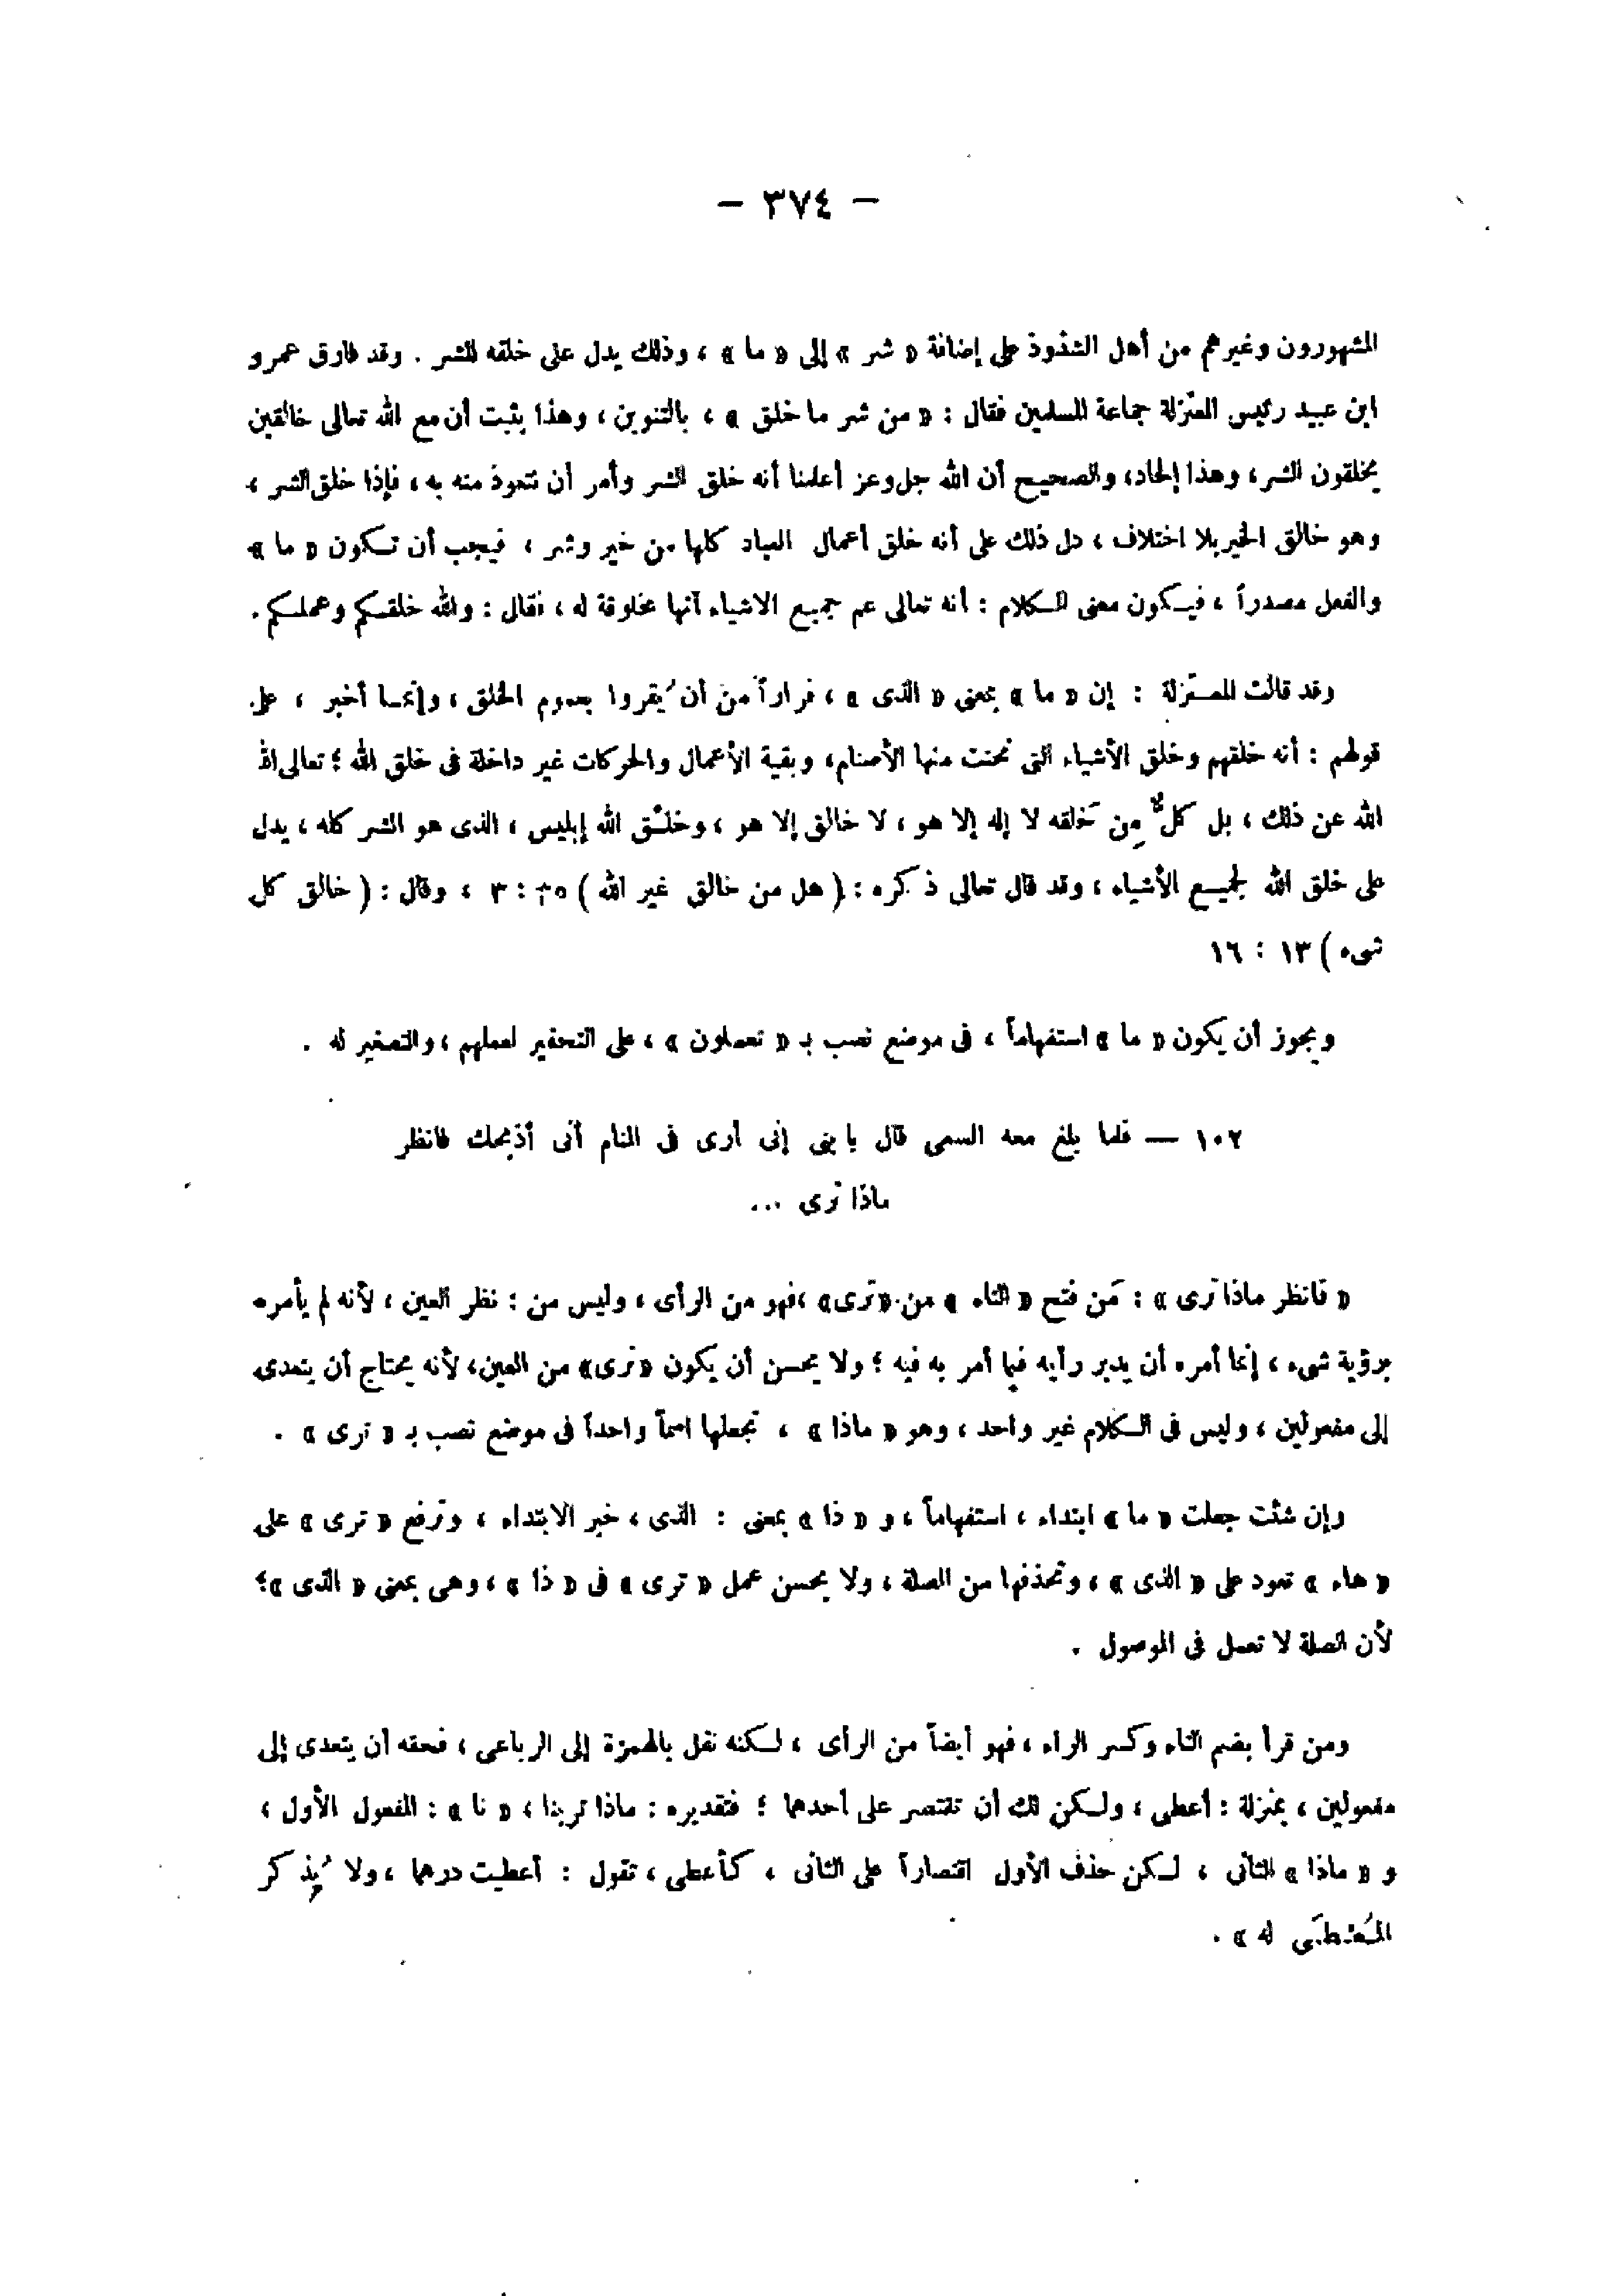 — ٣٧٤ —
المشهورون وغيرهم من أهل الشذوذ على إضافة « شر » إلى « ما » ، وذلك يدل على خلقه للشر . وقد فارق عمرو
ابن عبيد رئيس المعتزلة جماعة المسلمين فقال : « من شر ما خلق » ، بالتنوين ، وهذا يثبت أن مع الله تعالى خالقين
يخلقون الشر ، وهذا إلحاد ، والصحيح أن الله جل وعز أعلمنا أنه خلق الشر وأمر أن نتعوذ منه به ، فإذا خلق الشر ،
وهو خالق الخير بلا اختلاف ، دل ذلك على أنه خلق أعمال العباد كلها من خير وشر ، فيجب أن تكون « ما »
والفعل مصدراً ، فيكون معنى الكلام : أنه تعالى عم جميع الأشياء أنها مخلوقة له ، فقال : والله خلقكم وعملكم .
وقد قالت المعتزلة : إن « ما » بمعنى « الذى » ، فراراً من أن يُقروا بعموم الخلق ، وإنما أخبر ، على
قولهم : أنه خلقهم وخلق الأشياء التى نحتت منها الأصنام ، وبقية الأعمال والحركات غير داخلة فى خلق الله ؛ تعالى الله
الله عن ذلك ، بل كلٌّ مِن خَلقه لا إله إلا هو ، لا خالق إلا هو ، وخلْق الله إبليس ، الذى هو الشر كله ، يدل
على خلق الله لجميع الأشياء ، وقد قال تعالى ذكره : ( هل من خالق غير الله ) ٣٥ : ٣ ، وقال : ( خالق كل
شىء ) ١٣ : ١٦
ويجوز أن يكون « ما » استفهاماً ، فى موضع نصب بـ « تعملون » ، على التحقير لعملهم ، والتصغير له .
١٠٢ — فلما بلغ معه السعى قال يا بنى إنى أرى فى المنام أنى أذبحك فانظر
ماذا ترى ...
« فانظر ماذا ترى » : مَن فتح « التاء » من « تَرى » ، فهو من الرأى ، وليس من : نظر العين ، لأنه لم يأمره
برؤية شىء ، إنما أمره أن يدبر رأيه فيما أمر به فيه ؛ ولا يحسن أن يكون « ترى » من العين ، لأنه يحتاج أن يتعدى
إلى مفعولين ، وليس فى الكلام غير واحد ، وهو « ماذا » ، تجعلها اسماً واحداً فى موضع نصب بـ « ترى » .
وإن شئت جعلت « ما » ابتداء ، استفهاماً ، و « ذا » بمعنى : الذى ، خبر الابتداء ، وترفع « ترى » على
« هاء » تعود على « الذى » ، وتحذفها من الصلة ، ولا يحسن عمل « ترى » فى « ذا » ، وهى بمعنى « الذى » ؛
لأن الصلة لا تعمل فى الموصول .
ومن قرأ بضم التاء وكسر الراء ، فهو أيضاً من الرأى ، لكنه نقل بالهمزة إلى الرباعى ، فحقه أن يتعدى إلى
مفعولين ، بمنزلة : أعطى ، ولكن لك أن تقتصر على أحدهما ؛ فتقديره : ماذا ترينا ، « نا » : المفعول الأول ،
و « ماذا » الثانى ، لكن حذف الأول اقتصاراً على الثانى ، كأعطى ، تقول : أعطيت درهما ، ولا يُذكر
المُعْطَى له » .